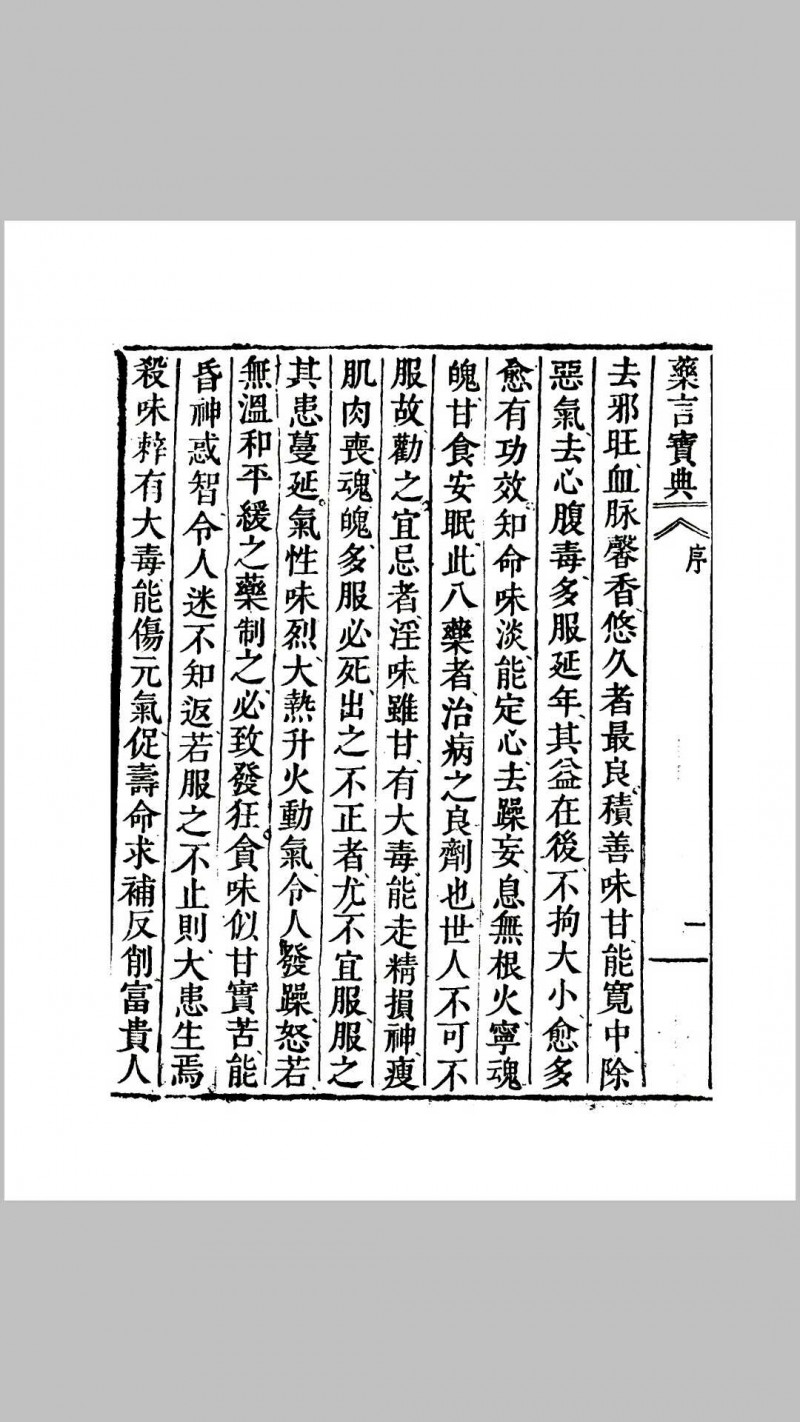 藥言寶典 序 二
去邪旺血脉馨香悠久者最良積善味甘能寬中除
惡氣去心腹毒多服延年其益在後不拘大小愈多
愈有功效知命味淡能定心去躁妄息無根火寧魂
魄甘食安眠此八藥者治病之良劑也世人不可不
服故勸之宜忌者淫味雖甘有大毒能走精損神瘦
肌肉喪魂魄多服必死出之不正者尤不宜服服之
其患蔓延氣性味烈大熱升火動氣令人發躁怒若
無溫和平緩之藥制之必致發狂貪味似甘實苦能
昏神惑智令人迷不知返若服之不止則大患生焉
殺味辢有大毒能傷元氣促壽命求補反削富貴人